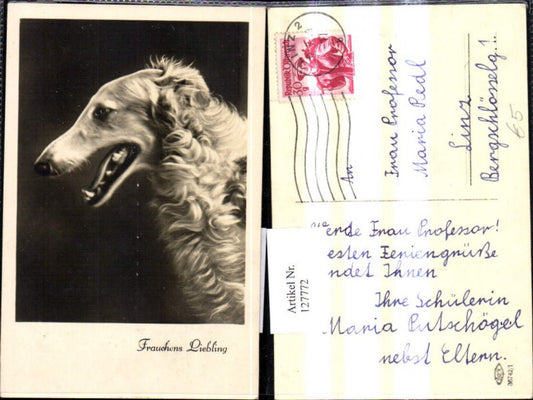 Frauchens Liebling
Artikel Nr.
127772
Republik Österreich
30
LINZ 2
An
Frau Professor
Maria Pedl
Linz
Bergschlösselg. 1.
65
Werte Frau Professor!
esten Feriengrüße
ndet Ihnen
Ihre Schülerin
Maria Putschögel
nebst Eltern.
36742/1